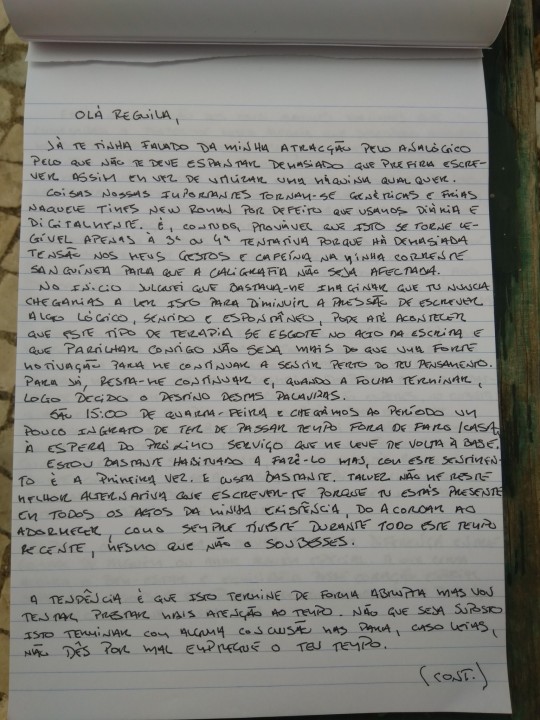 OLÁ REGUILA,
JÁ TE TINHA FALADO DA MINHA ATRACÇÃO PELO ANALÓGICO
PELO QUE NÃO TE DEVE ESPANTAR DEMASIADO QUE PREFIRA ESCRE-
VER ASSIM EM VEZ DE UTILIZAR UMA MÁQUINA QUALQUER.
COISAS NOSSAS IMPORTANTES TORNAM-SE GENÉRICAS E FRIAS
NAQUELE TIMES NEW ROMAN POR DEFEITO QUE USAMOS DIÁRIA E
DIGITALMENTE. É, CONTUDO, PROVÁVEL QUE ISTO SE TORNE LE-
GÍVEL APENAS À 3ª OU 4ª TENTATIVA PORQUE HÁ DEMASIADA
TENSÃO NOS MEUS GESTOS E CAFEÍNA NA MINHA CORRENTE
SANGUÍNEA PARA QUE A CALIGRAFIA NÃO SEJA AFECTADA.
NO INÍCIO JULGUEI QUE BASTAVA-ME IMAGINAR QUE TU NUNCA
CHEGARIAS A LER ISTO PARA DIMINUIR A PRESSÃO DE ESCREVER
ALGO LÓGICO, SENTIDO E ESPONTÂNEO, PODE ATÉ ACONTECER
QUE ESTE TIPO DE TERAPIA SE ESGOTE NO ACTO DA ESCRITA E
QUE PARTILHAR CONTIGO NÃO SEJA MAIS DO QUE UMA FORTE
MOTIVAÇÃO PARA ME CONTINUAR A SENTIR PERTO DO TEU PENSAMENTO.
PARA JÁ, RESTA-ME CONTINUAR E, QUANDO A FOLHA TERMINAR,
LOGO DECIDO O DESTINO DESTAS PALAVRAS.
SÃO 15:00 DE QUARTA-FEIRA E CHEGÁMOS AO PERÍODO UM
POUCO INGRATO DE TER DE PASSAR TEMPO FORA DE FARO/CASA
À ESPERA DO PRÓXIMO SERVIÇO QUE ME LEVE DE VOLTA À BASE.
ESTOU BASTANTE HABITUADO A FAZÊ-LO MAS, COM ESTE SENTIMEN-
TO É A PRIMEIRA VEZ. E CUSTA BASTANTE. TALVEZ NÃO ME RESTE
MELHOR ALTERNATIVA QUE ESCREVER-TE PORQUE TU ESTÁS PRESENTE
EM TODOS OS ACTOS DA MINHA EXISTÊNCIA, DO ACORDAR AO
ADORMECER, COMO SEMPRE TIVESTE DURANTE TODO ESTE TEMPO
RECENTE, MESMO QUE NÃO O SOUBESSES.
A TENDÊNCIA É QUE ISTO TERMINE DE FORMA ABRUPTA MAS VOU
TENTAR PRESTAR MAIS ATENÇÃO AO TEMPO. NÃO QUE SEJA SUPOSTO
ISTO TERMINAR COM ALGUMA CONCLUSÃO MAS PARA, CASO LEIAS,
NÃO DÊS POR MAL EMPREGUE O TEU TEMPO.
(CONT.)